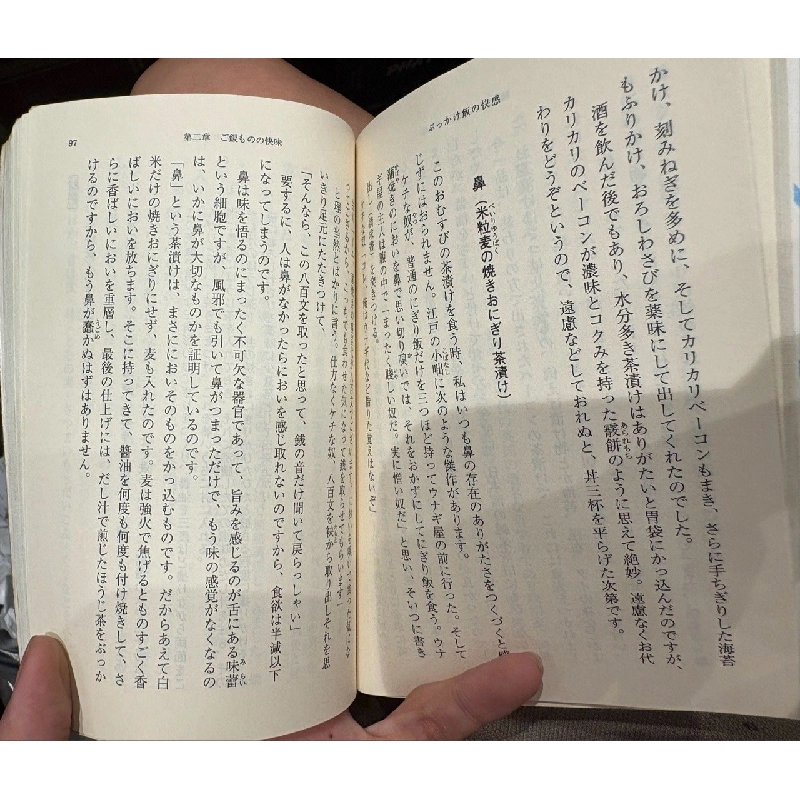 ぶっかけ飯の快感
かけ、刻みねぎを多めに、そしてカリカリベーコンもまき、さらに手ちぎりした海苔
もふりかけ、おろしわさびを薬味にして出してくれたのでした。
酒を飲んだ後でもあり、水分多き茶漬けはありがたいと胃袋にかっ込んだのですが、
カリカリのベーコンが濃味とコクみを持った霰餅のように思えて絶妙。遠慮なくお代
わりをどうぞというので、遠慮などしておれぬと、丼三杯を平らげた次第です。
鼻（米粒麦の焼きおにぎり茶漬け）
このおむすびの茶漬けを食う時、私はいつも鼻の存在のありがたさをつくづくと
じずにはおられません。江戸の小咄に次のような傑作があります。
ケチな奴が、普通のにぎり飯だけを三つほど持ってウナギ屋の前に行った。そして
蒲焼きのにおいを鼻で思い切り嗅いでは、それをおかずにしてにぎり飯を食う。ウナ
ギ屋の主人は腹の中で「まったく隆しい奴だ。実に憎い奴だ」と思い、そいつに書き
と理の当然とばかりに言う。仕方なくケチな奴、八百文を懐から取り出しそれを思
いきり足元にたたきつけて、
「そんなら、この八百文を取ったと思って、銭の音だけ聞いて戻らっしゃい」
要するに、人は鼻がなかったらにおいを感じ取れないのですから、食欲は半減以下
になってしまうのです。
鼻は味を悟るのにまったく不可欠な器官であって、旨みを感じるのが舌にある味蕾
という細胞ですが、風邪でも引いて鼻がつまっただけで、もう味の感覚がなくなるの
は、いかに鼻が大切なものかを証明しているのです。
「鼻」という茶漬けは、まさににおいそのものをかっ込むものです。だからあえて白
米だけの焼きおにぎりにせず、麦も入れたのです。麦は強火で焦げるとものすごく香
ばしいにおいを放ちます。そこに持ってきて、醤油を何度も何度も付け焼きして、さ
らに香ばしいにおいを重層し、最後の仕上げには、だし汁で煎じたほうじ茶をぶっか
けるのですから、もう鼻が蠢かぬはずはありません。
第二章　ご飯ものの快味
97